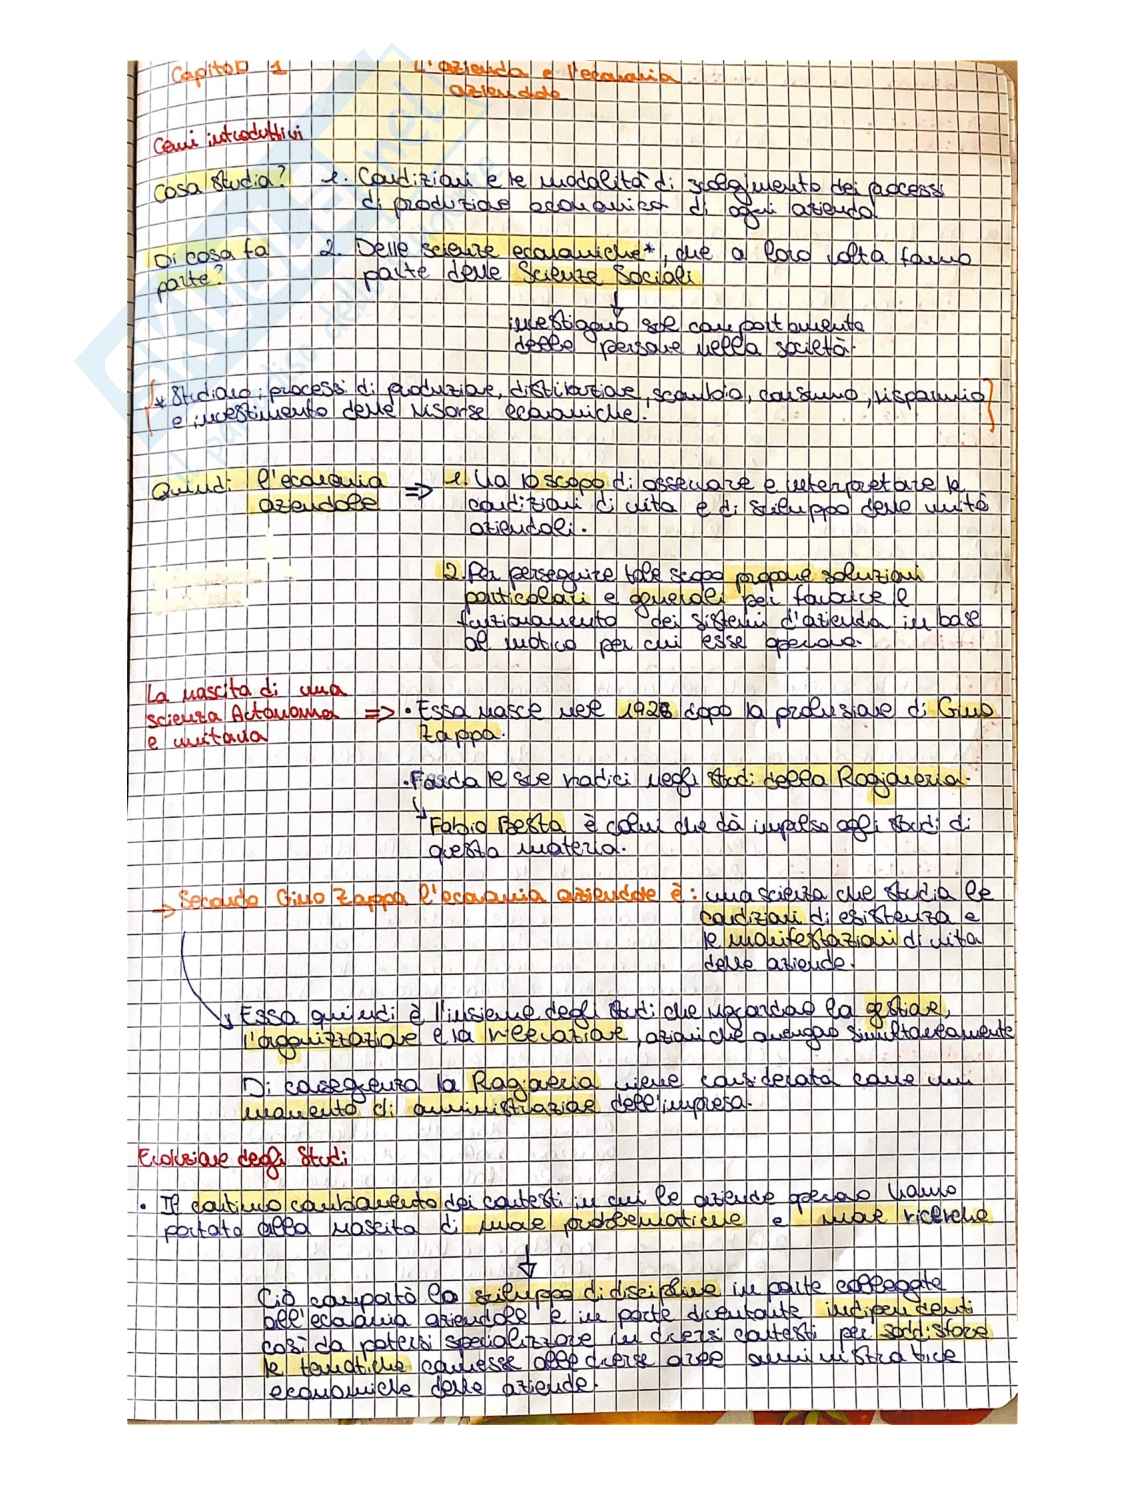 Capitolo 1 L'azienda e l'economia
aziendale
Cenni introduttivi
Cosa studia? 1. Condizioni e le modalità di svolgimento dei processi
di produzione economica di ogni azienda
Di cosa fa 2. Delle scienze economiche*, che a loro volta fanno
parte? parte delle Scienze Sociali
↓
investigano sul comportamento
delle persone nella società.
* Studiano i processi di produzione, distribuzione, scambio, consumo, risparmio
e investimento delle risorse economiche.
Quindi l'economia => 1. Ha lo scopo di osservare e interpretare le
aziendale condizioni di vita e di sviluppo delle unità
aziendali.
2. Per perseguire tale scopo propone soluzioni
particolari e generali per favorire il
funzionamento dei sistemi d'azienda in base
al motivo per cui esse operano.
La nascita di una
scienza Autonoma => • Essa nasce nel 1926 dopo la prolusione di Gino
e unitaria Zappa.
• Fonda le sue radici negli studi della Ragioneria.
↳ Fabio Besta è colui che dà impulso agli studi di
questa materia.
→ Secondo Gino Zappa l'economia aziendale è: una scienza che studia le
condizioni di esistenza e
le manifestazioni di vita
delle aziende.
Essa quindi è l'insieme degli studi che riguardano la gestione,
l'organizzazione e la rilevazione, azioni che avvengono simultaneamente
Di conseguenza la Ragioneria viene considerata come un
momento di amministrazione dell'impresa.
Evoluzione degli Studi
• Il continuo cambiamento dei contesti in cui le aziende operano hanno
portato alla nascita di nuove problematiche e nuove ricerche
↓
Ciò comportò lo sviluppo di discipline in parte collegate
all'economia aziendale e in parte diventante indipendenti
così da potersi specializzare in diversi contesti per soddisfare
le tematiche connesse alle diverse aree amministrative
economiche delle aziende.